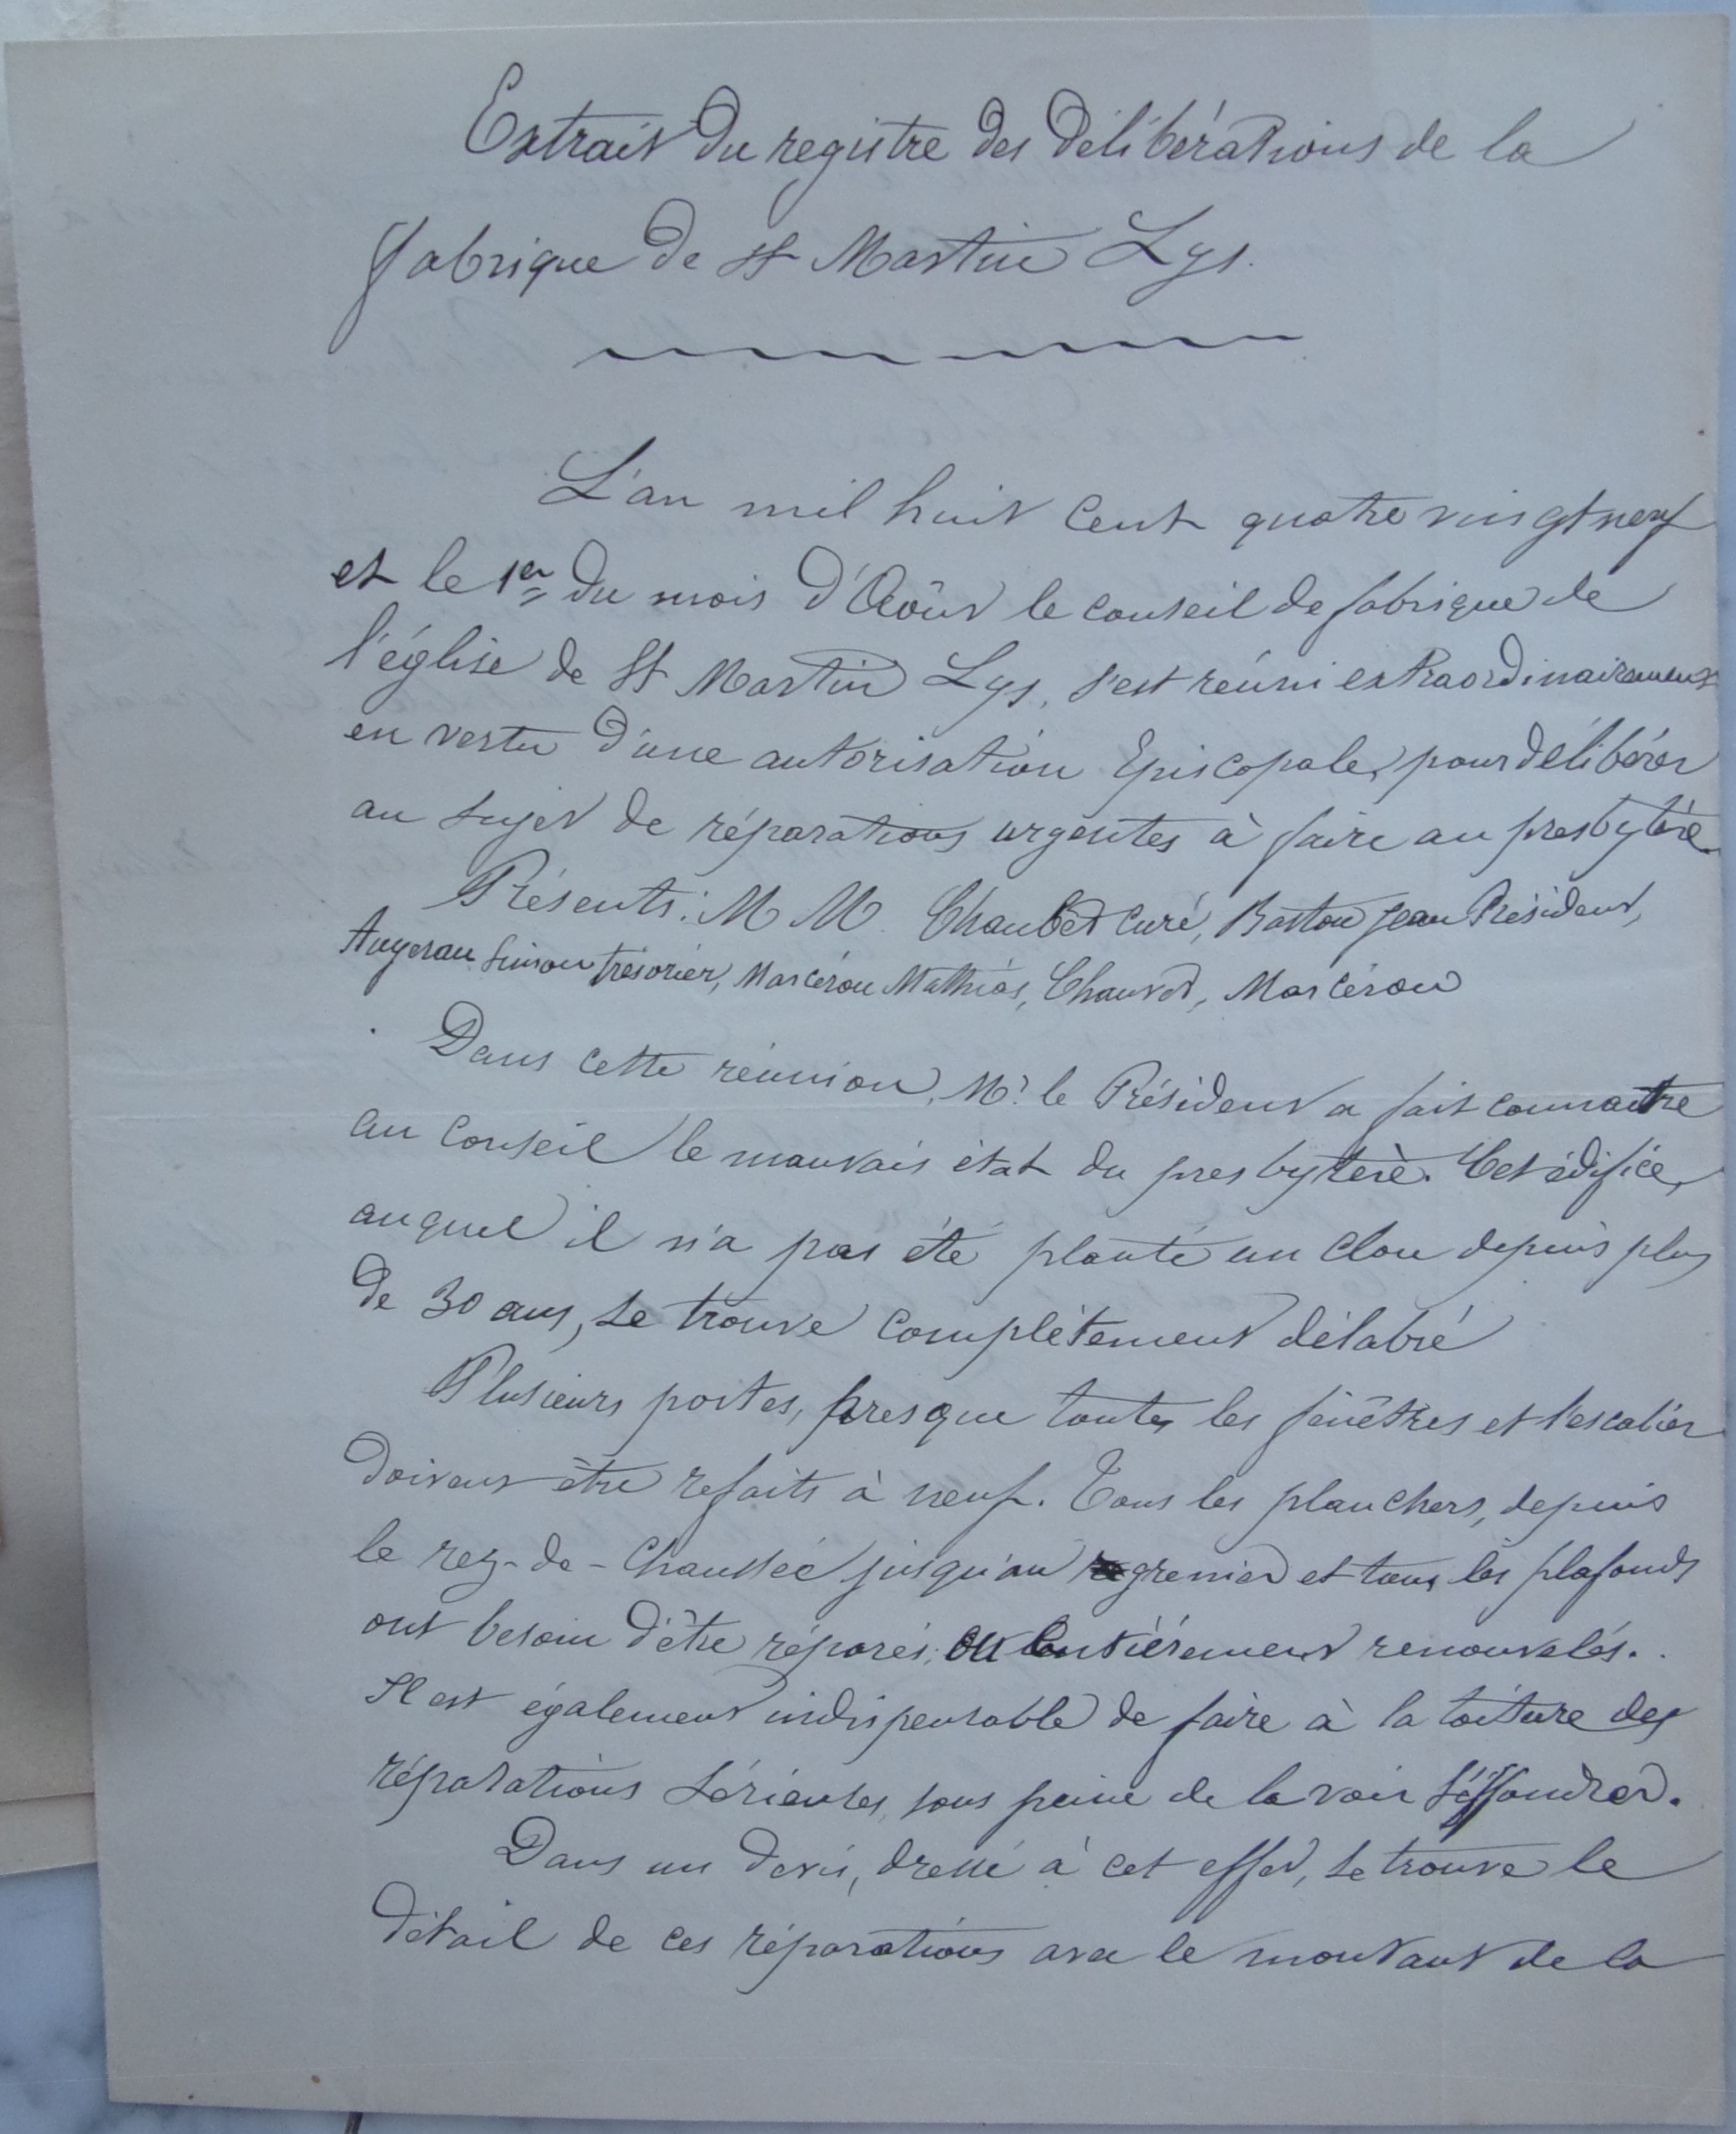 Extrait du registre des délibérations de la
fabrique de St Martin Lys.
L'an mil huit cent quatre vingt neuf
et le 1er du mois d'Août le conseil de fabrique de
l'église de St Martin Lys, s'est réuni extraordinairement
en vertu d'une autorisation Episcopale, pour délibérer
au sujet de réparations urgentes à faire au presbytère.
Présents: M M. Chaubet curé, Baston Jean Président,
Augerau Simon trésorier, Marcérou Mathias, Chauvet, Marcérou
Dans cette réunion, Mr le Président a fait connaitre
au conseil le mauvais état du presbytère. Cet édifice,
auquel il n'a pas été planté un clou depuis plus
de 30 ans, se trouve complètement délabré
Plusieurs portes, presque toutes les fenêtres et l'escalier
doivent être refaits à neuf. Tous les planchers, depuis
le rez-de-chaussée jusqu'au grenier et tous les plafonds
ont besoin d'être réparés, ou entièrement renouvelés.
Il est également indispensable de faire à la toiture des
réparations sérieuses, sous peine de la voir s'éffondrer.
Dans un devis, dressé à cet effet, se trouve le
détail de ces réparations avec le montant de la